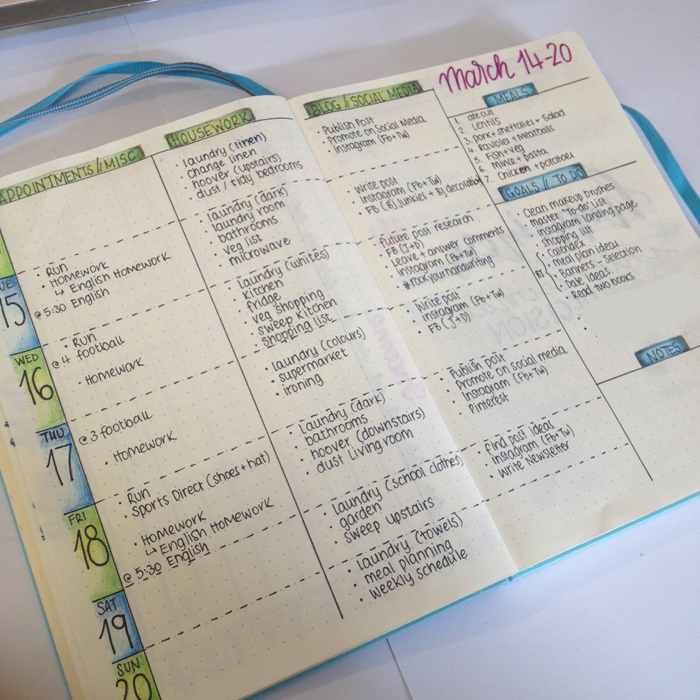 March 14-20
APPOINTMENTS/MISC
UE
15
WED
16
THU
17
FRI
18
SAT
19
SUN
20
· Run
· Homework
↳ English Homework
@ 5:30 English
· Run
@ 4 football
· Homework
@ 3 football
· Homework
· Run
· Sports Direct (shoes + hat)
· Homework
↳ English Homework
@ 5:30 English
HOUSEWORK
· laundry (linen)
· change linen
· hoover (upstairs)
· dust / tidy bedrooms
· laundry (dark)
· laundry room
· bathrooms
· veg list
· microwave
· laundry (whites)
· kitchen
· fridge
· veg shopping
· sweep kitchen
· shopping list
· laundry (colours)
· supermarket
· ironing
· laundry (dark)
· bathrooms
· hoover (downstairs)
· dust living room
· laundry (school clothes)
· garden
· sweep upstairs
· laundry (towels)
· meal planning
· weekly schedule
BLOG / SOCIAL MEDIA
· Publish Post
· Promote on Social Media
· Instagram (Fb+Tw)
· write post
· Instagram (Fb+Tw)
· FB (BJ Junkies +
· future post research
· FB (J+D)
· Leave + answer comments
· instagram (Fb+Tw)
· #rockyourhandwriting
· write post
· instagram (Fb+Tw)
· FB (J+D)
· Publish post
· Promote on social media
· Instagram (Fb+Tw)
· Pinterest
· find post ideas
· instagram (Fb+Tw)
· write Newsletter
MEALS
1. ate out
2. Lentils
3. pork + salad
4. Ravioles + Meatballs
5. Fish + veg
6. Mince + pasta
7. Chicken + potatoes
GOALS / TO DO
· Clean makeup brushes
· master "To-do" List
· instagram landing page
· shopping list
· calendex
· meal plan ideas
· Banners - selection
· Date ideas
· Read two books
NOTES